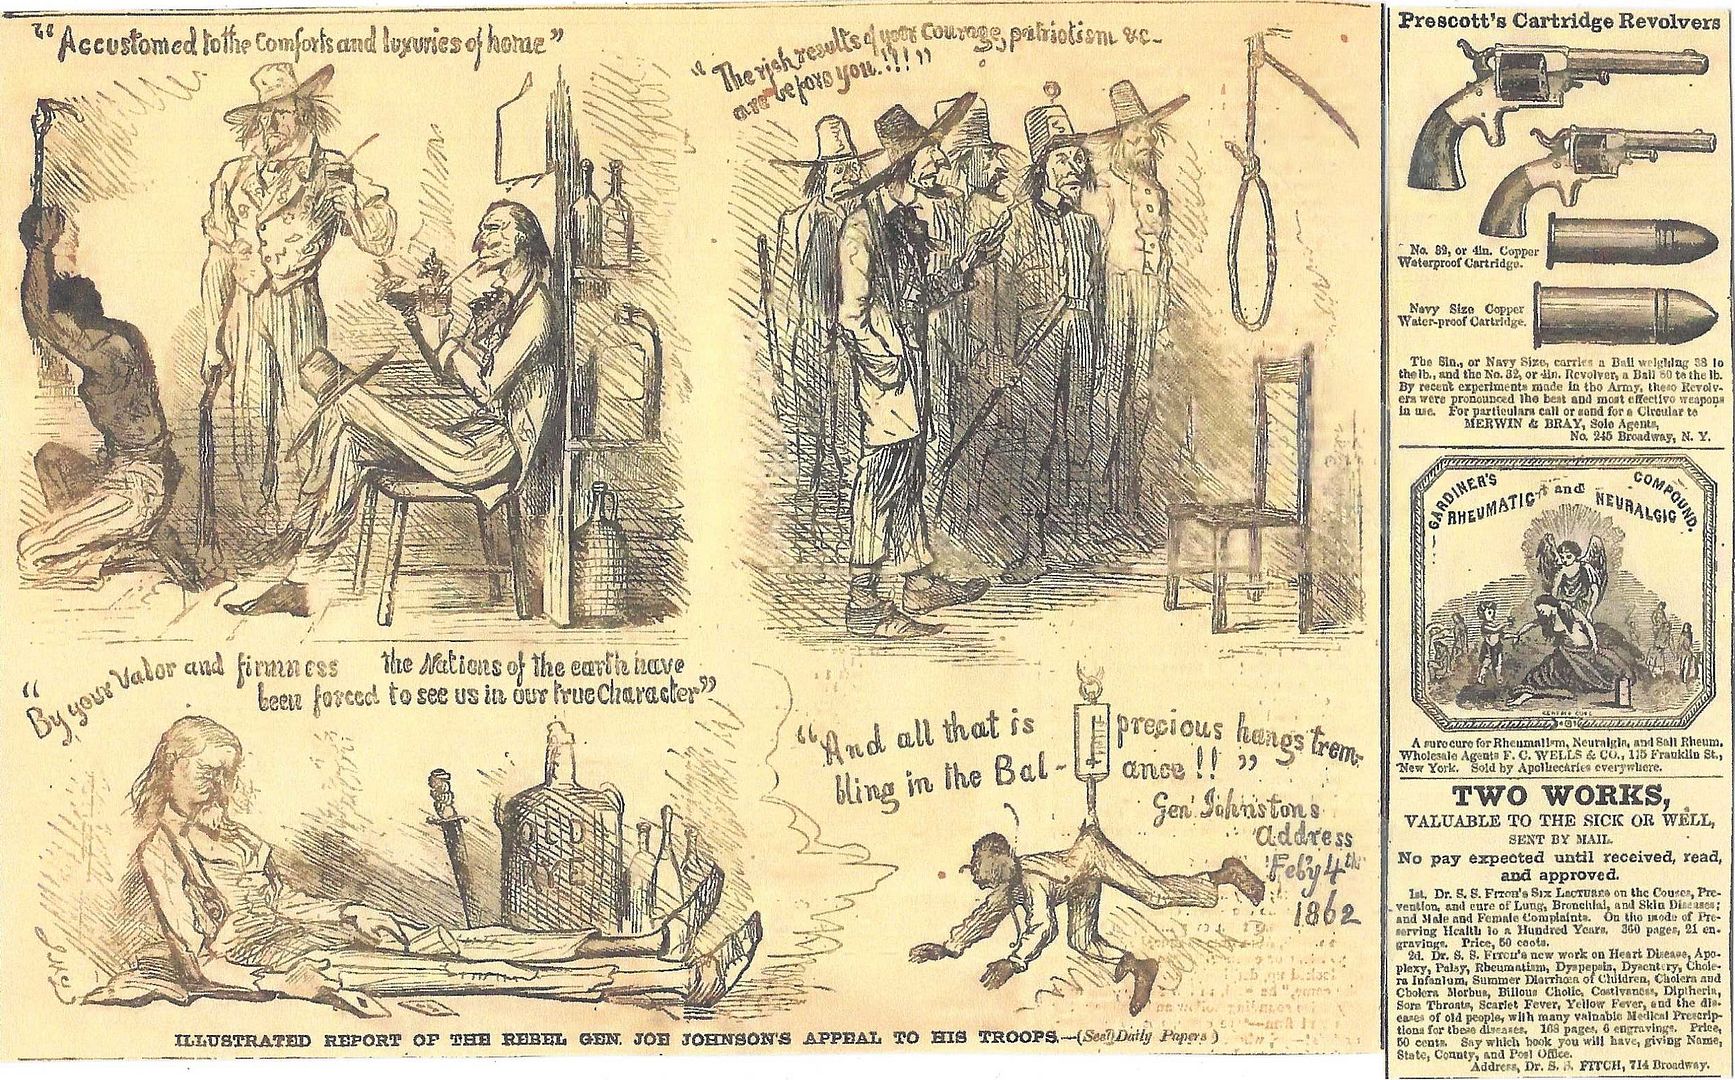 "Accustomed to the Comforts and luxuries of home"
"The rich results of your Courage, patriotism &c-
are before you.!!!"
"By your Valor and firmness the Nations of the earth have
been forced to see us in our true Character"
OLD
RYE
"And all that is precious hangs trem-
bling in the Bal-ance!!"
Gen' Johnstons
Address
Feb'y 4th
1862
ILLUSTRATED REPORT OF THE REBEL GEN. JOE JOHNSON'S APPEAL TO HIS TROOPS.—(See Daily Papers)
Prescott's Cartridge Revolvers
No. 32, or 4in. Copper
Waterproof Cartridge.
Navy Size Copper
Water-proof Cartridge.
The 8in., or Navy Size, carries a Ball weighing 38 to
the lb., and the No. 32, or 4in. Revolver, a Ball 80 to the lb.
By recent experiments made in the Army, these Revolv-
ers were pronounced the best and most effective weapons
in use. For particulars call or send for a Circular to
MERWIN & BRAY, Sole Agents,
No. 245 Broadway, N. Y.
GARDINER'S
RHEUMATIC and NEURALGIC
COMPOUND.
A sure cure for Rheumatism, Neuralgia, and Salt Rheum.
Wholesale Agents F. C. WELLS & CO., 115 Franklin St.,
New York. Sold by Apothecaries everywhere.
TWO WORKS,
VALUABLE TO THE SICK OR WELL,
SENT BY MAIL.
No pay expected until received, read,
and approved.
1st. Dr. S. S. FITCH'S SIX LECTURES on the Causes, Pre-
vention, and cure of Lung, Bronchial, and Skin Diseases;
and Male and Female Complaints. On the mode of Pre-
serving Health to a Hundred Years. 360 pages, 21 en-
gravings. Price, 50 cents.
2d. Dr. S. S. FITCH'S new work on Heart Disease, Apo-
plexy, Palsy, Rheumatism, Dyspepsia, Dysentery, Chole-
ra Infantum, Summer Diarrhœa of Children, Cholera and
Cholera Morbus, Bilious Cholic, Costiveness, Diptheria,
Sore Throats, Scarlet Fever, Yellow Fever, and the dis-
eases of old people, with many valuable Medical Prescrip-
tions for these diseases. 168 pages, 6 engravings. Price,
50 cents. Say which book you will have, giving Name,
State, County, and Post Office.
Address, Dr. S. S. FITCH, 714 Broadway.